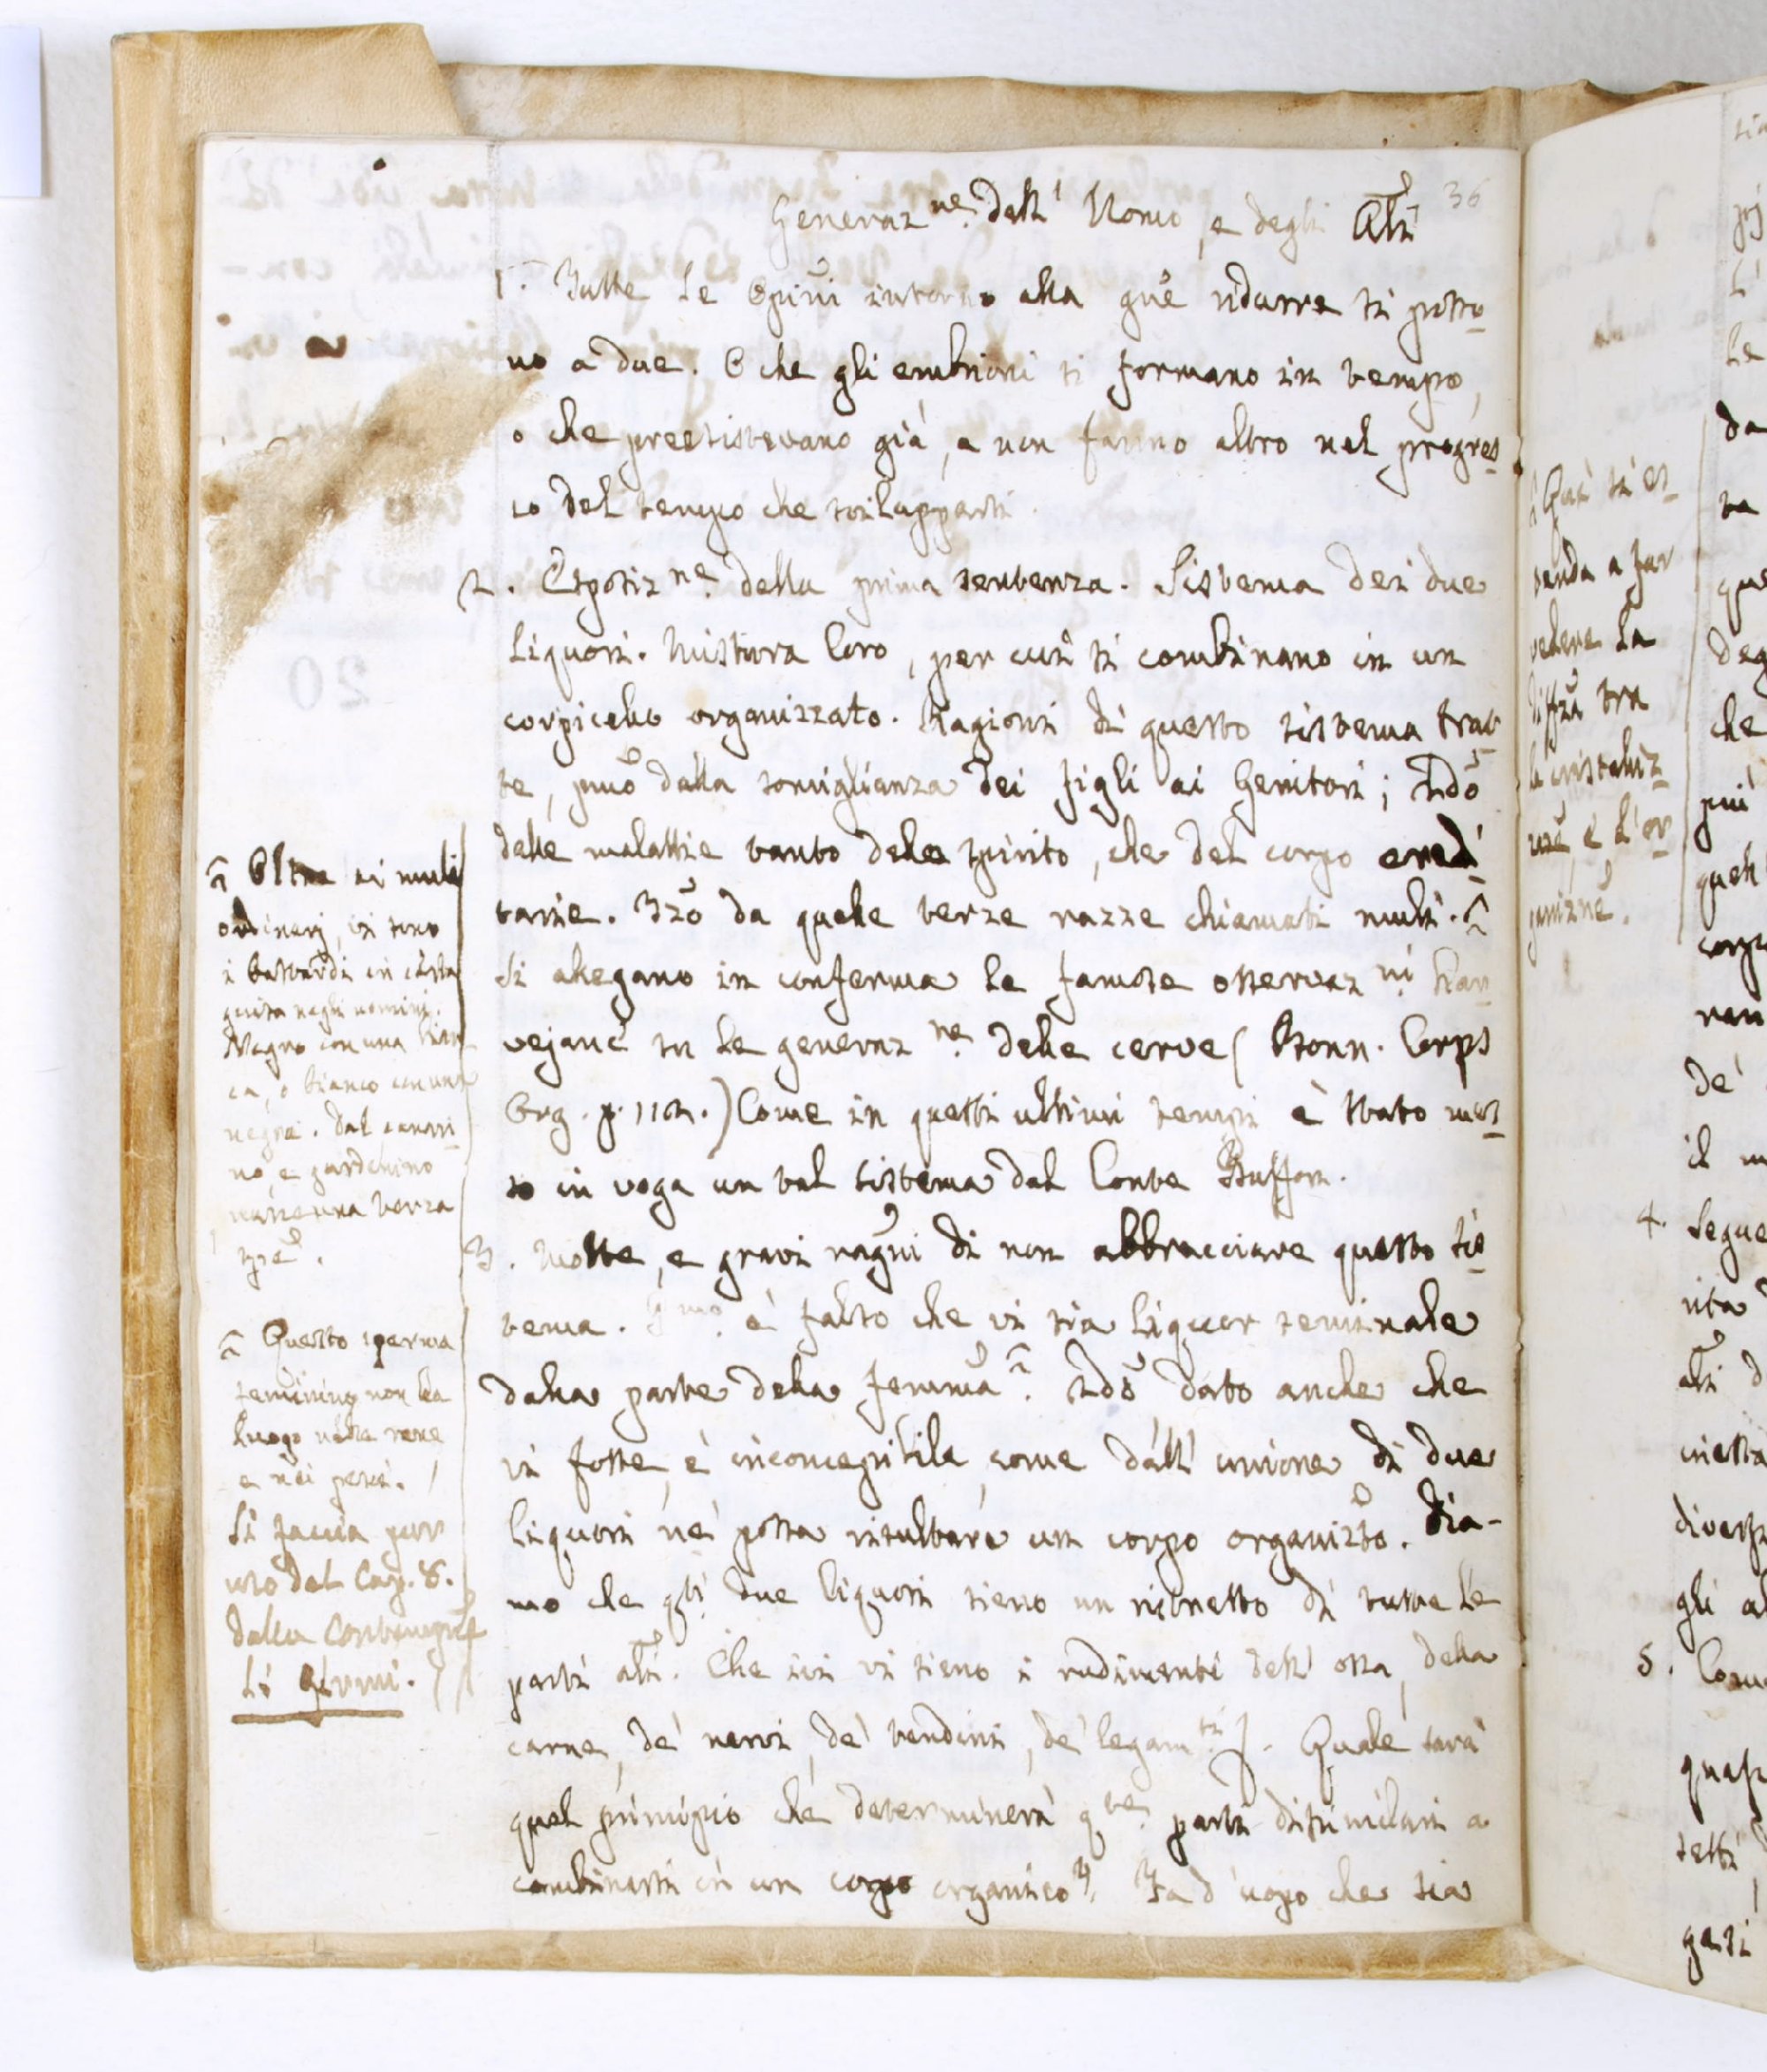 36
Generaz.ne dell' Uomo, e degli Ali
1. Tutte le Opini intorno alla gne ridurre si posso-
no a due. O che gli embrioni si formano in tempo,
o che preesistevano già, e non fanno altro nel progres-
so del tempo che svilupparsi.
2. Esposiz.ne della prima sentenza. Sistema dei due
liquori. Mistura loro, per cui si combinano in un
corpicello organizzato. Ragioni di questo sistema trat-
te, pmo dalla somiglianza dei figli ai Genitori; 2do
delle malattie tanto dello spirito, che del corpo eredi-
tarie. 3zo da quelle terze razze chiamati muli.
Si allegano in conferma le famose osservaz.ni Har-
vejane su la generaz.ne delle cerve (Bonn. Corps
Org. p. 112.) Come in questi ultimi tempi è stato mes-
so in voga un tal sistema dal Conte Buffon.
3. Molte, e gravi ragni di non abbracciare questo sis-
tema. è falso che vi sia liquor seminale
dalla parte della femma. 2do dato anche che
vi fosse, è inconcepibile, come dall' unione di due
liquori ne possa risultare un corpo organizto. Dia-
mo che qti due liquori sieno un ristretto di tutte le
parti ali. Che ivi vi sieno i rudimenti dell' ossa, della
carne, de' nervi, de' tendini, de' legam.ti. Quale sarà
quel principio che determinerà q.te parti disimilari a
combinarsi in un corpo organico? Fa d' uopo che sia
Oltre ai muli
ordinarj, vi sono
i bastardi in certa
guisa negli uomini.
Negro con una bian-
ca, o bianco con una
negra. Dal canari-
no, e gardellino
nasce una terza
spe.
Questo sperma
feminino non ha
luogo nelle rane,
e nei pesci.
Si faccia pur
uso del Cap. 8.
della Contempl
li germi.
Qui si es-
tenda a far
vedere la
diffza tra
la cristaliz-
zne, e l'or-
ganizne.
4. Segue
5. Come